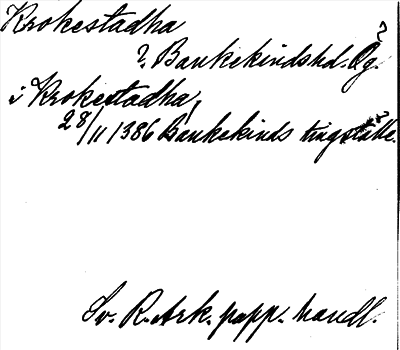 Krokestadha
?. Bankekindshd. Ög. ?
i Krokestadha,
28/11 1386 Bankekinds tingställe.
Sv. R. Ark. papp. handl.